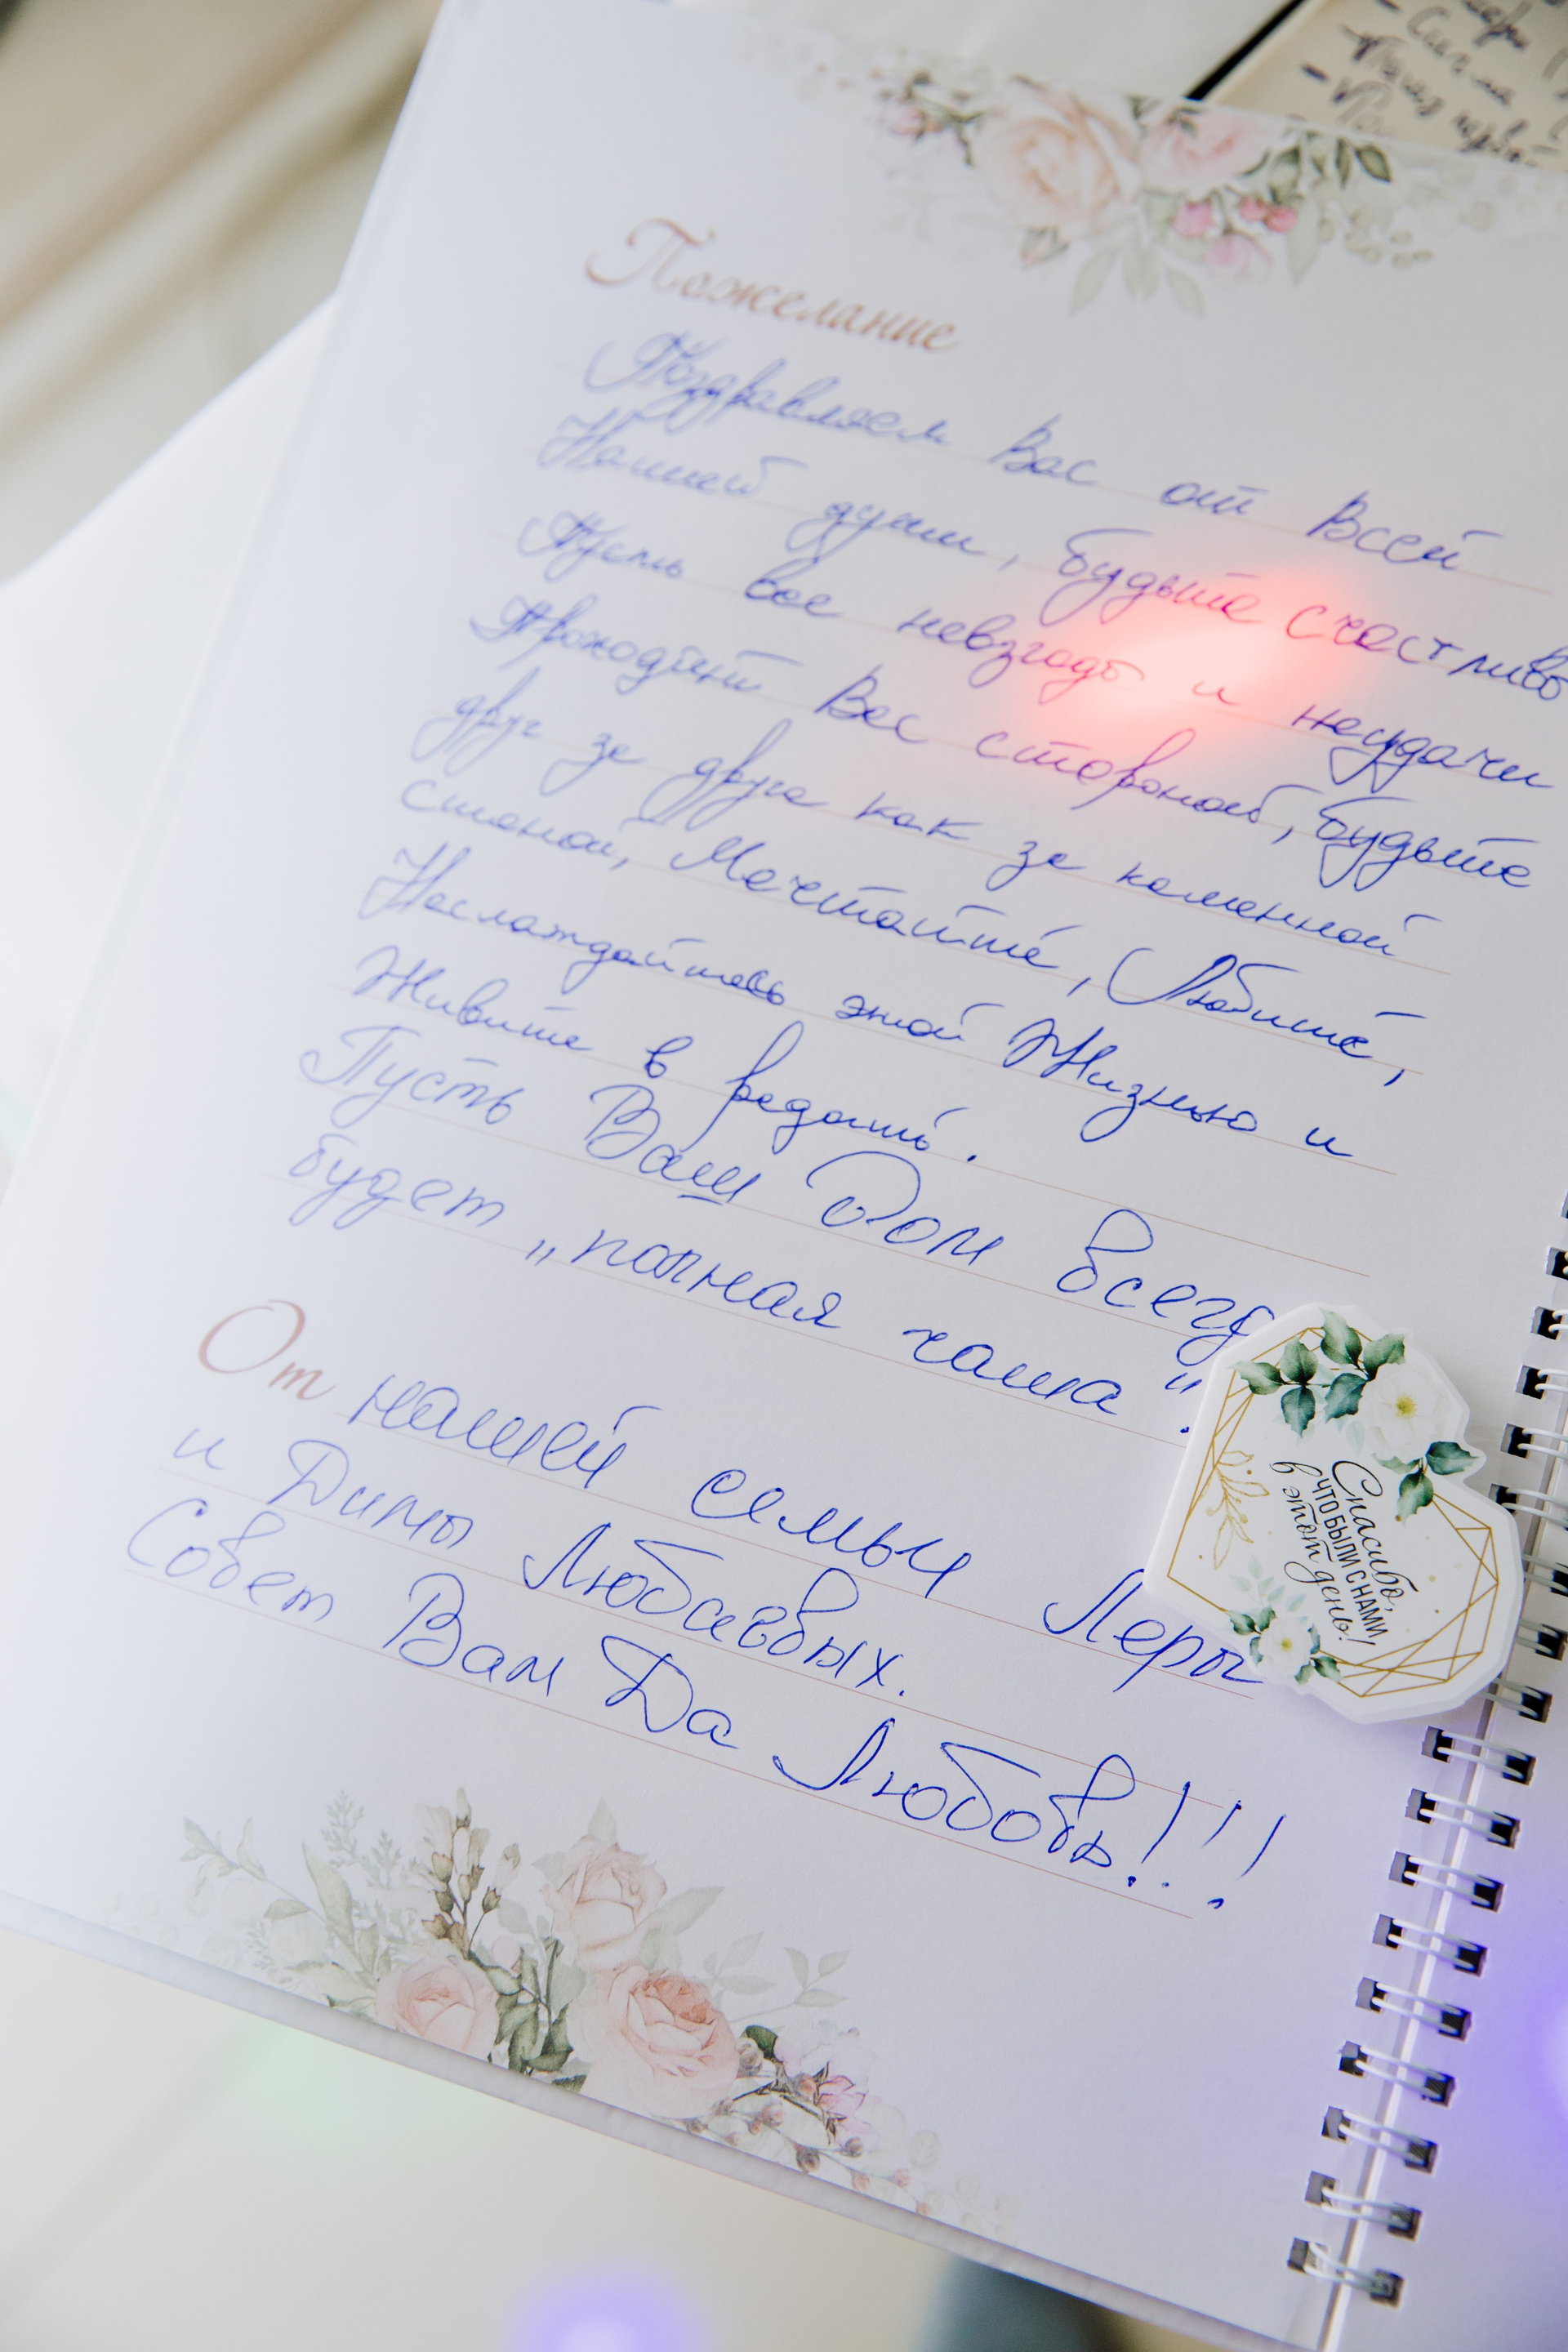 Пожелание
Поздравляем Вас от Всей
Нашей души, будьте счастливы
Пусть все невзгоды и неудачи
Проходят Вас стороной, будьте
друг за друга как за каменной
стеной, Мечтайте, Любите,
Наслаждайтесь этой Жизнью и
Живите в радости.
Пусть Ваш Дом всегд
будет „полная чаша".
От нашей семьи Леры
и Димы Любаевых.
Совет Вам Да Любовь!!!
Спасибо,
ЧТО БЫЛИ С НАМИ
в этот день!